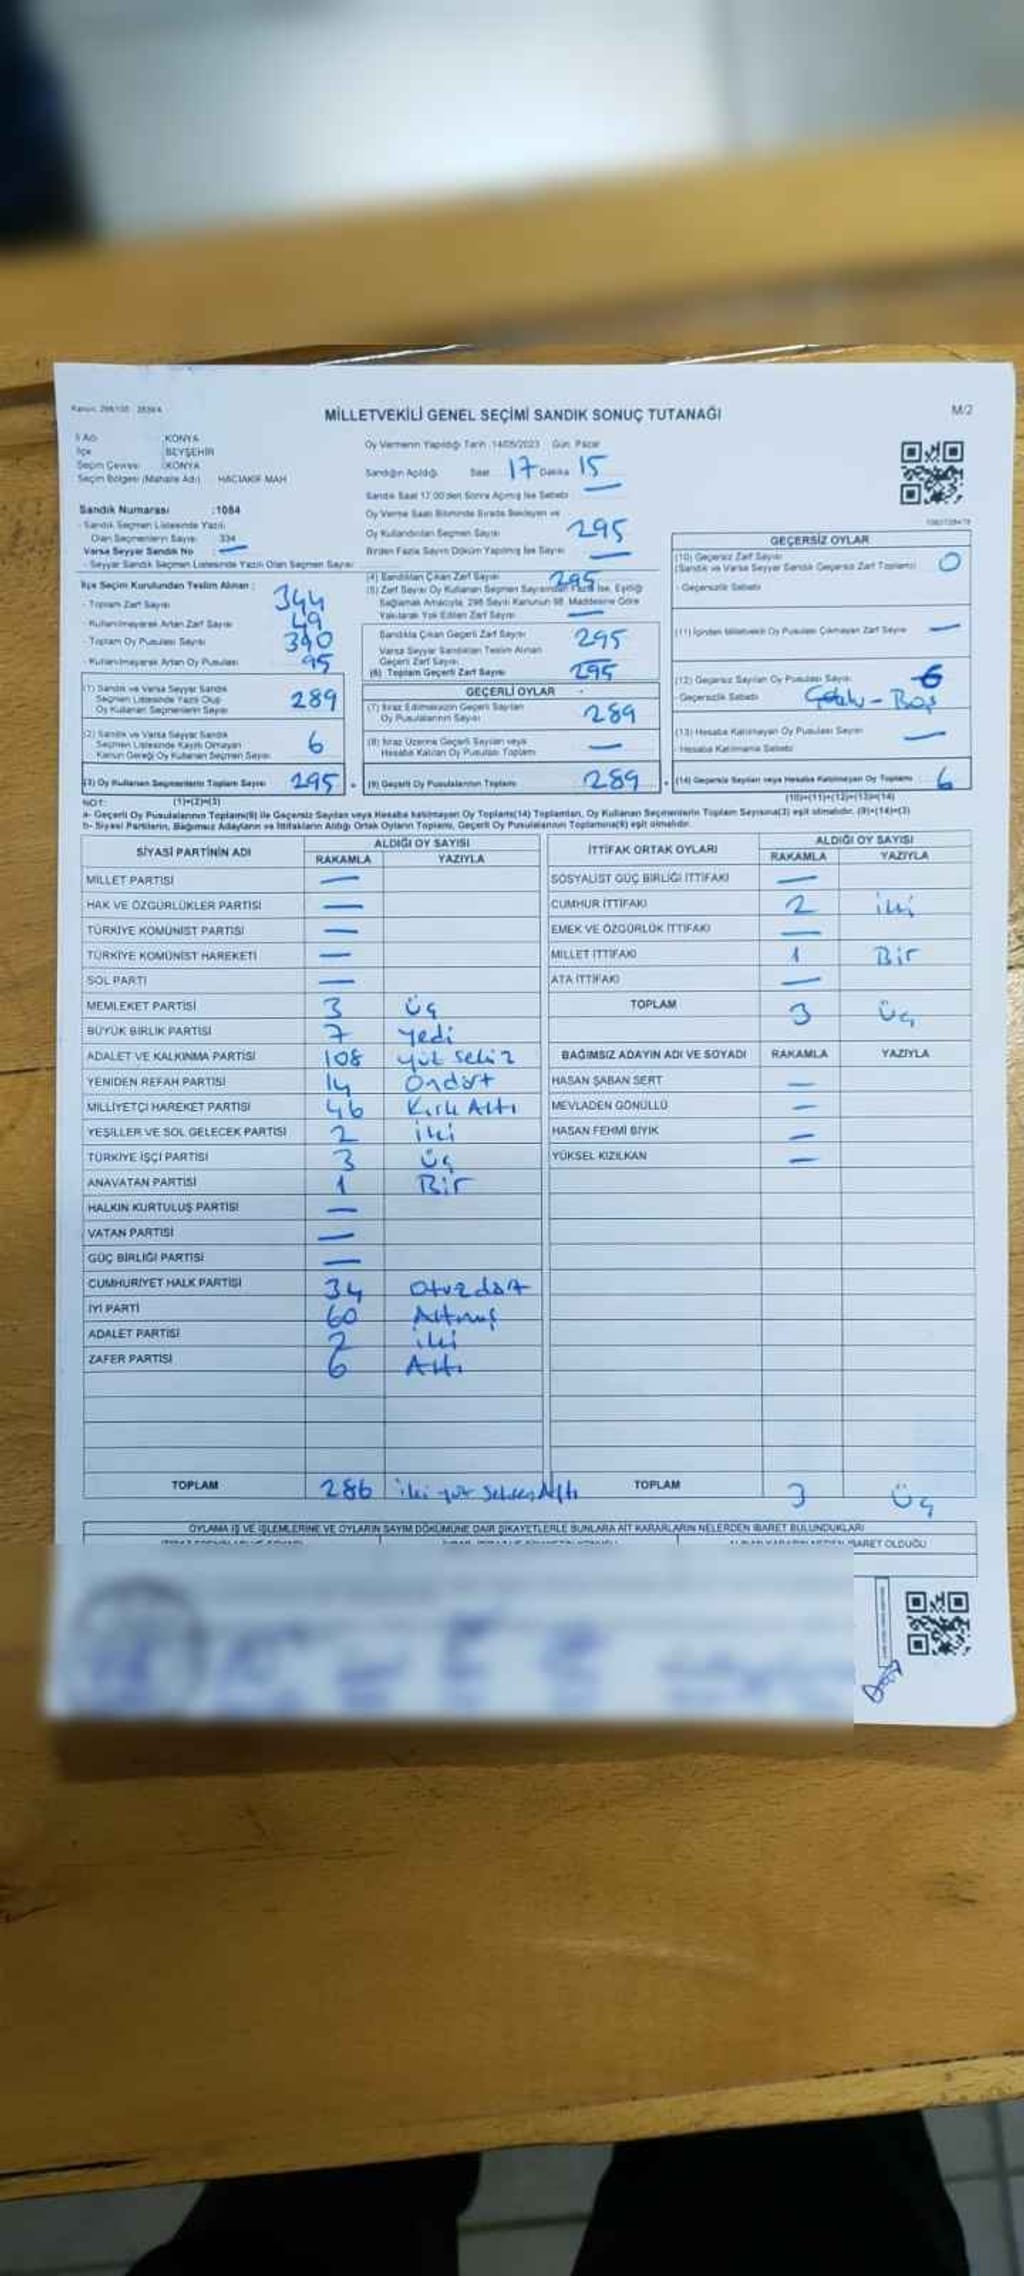 MİLLETVEKİLİ GENEL SEÇİMİ SANDIK SONUÇ TUTANAĞI
M/2
İl Adı :KONYA
İlçe :BEYŞEHİR
Seçim Çevresi :KONYA
Seçim Bölgesi (Mahalle Adı) HACIAKİF MAH
Oy Vermenin Yapıldığı Tarih :14/05/2023 Gün: Pazar
Sandığın Açıldığı Saat 17 Dakika 15
Sandık Saat 17.00'den Sonra Açılmış İse Sebebi —
Sandık Numarası :1084
- Sandık Seçmen Listesinde Yazılı
Olan Seçmenlerin Sayısı 334
Varsa Seyyar Sandık No —
- Seyyar Sandık Seçmen Listesinde Yazılı Olan Seçmen Sayısı
Oy Verme Saati Bitiminde Sırada Bekleyen ve
Oy Kullandırılan Seçmen Sayısı 295
Birden Fazla Sayım Döküm Yapılmış İse Sayısı —
İlçe Seçim Kurulundan Teslim Alınan :
- Toplam Zarf Sayısı 344
- Kullanılmayarak Artan Zarf Sayısı 49
- Toplam Oy Pusulası Sayısı 390
- Kullanılmayarak Artan Oy Pusulası 95
(1) Sandık ve Varsa Seyyar Sandık
Seçmen Listesinde Yazılı Olup
Oy Kullanan Seçmenlerin Sayısı 289
(2) Sandık ve Varsa Seyyar Sandık
Seçmen Listesinde Kayıtlı Olmayan
Kanun Gereği Oy Kullanan Seçmen Sayısı 6
(3) Oy Kullanan Seçmenlerin Toplam Sayısı 295
(1)+(2)=(3)
(4) Sandıktan Çıkan Zarf Sayısı 295
(5) Zarf Sayısı Oy Kullanan Seçmen Sayısından Fazla İse, Eşitliği
Sağlamak Amacıyla, 298 Sayılı Kanunun 98. Maddesine Göre
Yakılarak Yok Edilen Zarf Sayısı —
Sandıkta Çıkan Geçerli Zarf Sayısı 295
Varsa Seyyar Sandıktan Teslim Alınan
Geçerli Zarf Sayısı —
(6) Toplam Geçerli Zarf Sayısı 295
GEÇERLİ OYLAR
(7) İtiraz Edilmeksizin Geçerli Sayılan
Oy Pusulalarının Sayısı 289
(8) İtiraz Üzerine Geçerli Sayılan veya
Hesaba Katılan Oy Pusulası Toplamı —
(9) Geçerli Oy Pusulalarının Toplamı 289
GEÇERSİZ OYLAR
(10) Geçersiz Zarf Sayısı
(Sandık ve Varsa Seyyar Sandık Geçersiz Zarf Toplamı) 0
- Geçersizlik Sebebi
(11) İçinden Milletvekili Oy Pusulası Çıkmayan Zarf Sayısı —
(12) Geçersiz Sayılan Oy Pusulası Sayısı 6
- Geçersizlik Sebebi - Boş
(13) Hesaba Katılmayan Oy Pusulası Sayısı —
- Hesaba Katılmama Sebebi
(14) Geçersiz Sayılan veya Hesaba Katılmayan Oy Toplamı 6
(10)+(11)+(12)+(13)=(14)
NOT:
a- Geçerli Oy Pusulalarının Toplamı(9) ile Geçersiz Sayılan veya Hesaba katılmayan Oy Toplamı(14) Toplamları, Oy Kullanan Seçmenlerin Toplam Sayısına(3) eşit olmalıdır. (9)+(14)=(3)
b- Siyasi Partilerin, Bağımsız Adayların ve İttifakların Aldığı Ortak Oyların Toplamı, Geçerli Oy Pusulalarının Toplamına(9) eşit olmalıdır.
SİYASİ PARTİNİN ADI ALDIĞI OY SAYISI
RAKAMLA YAZIYLA
MİLLET PARTİSİ —
HAK VE ÖZGÜRLÜKLER PARTİSİ —
TÜRKİYE KOMÜNİST PARTİSİ —
TÜRKİYE KOMÜNİST HAREKETİ —
SOL PARTİ —
MEMLEKET PARTİSİ 3 üç
BÜYÜK BİRLİK PARTİSİ 7 yedi
ADALET VE KALKINMA PARTİSİ 108 yüz sekiz
YENİDEN REFAH PARTİSİ 14 Ondört
MİLLİYETÇİ HAREKET PARTİSİ 46 Kırk Altı
YEŞİLLER VE SOL GELECEK PARTİSİ 2 iki
TÜRKİYE İŞÇİ PARTİSİ 3 üç
ANAVATAN PARTİSİ 1 Bir
HALKIN KURTULUŞ PARTİSİ —
VATAN PARTİSİ —
GÜÇ BİRLİĞİ PARTİSİ —
CUMHURİYET HALK PARTİSİ 34 Otuzdört
İYİ PARTİ 60 Altmış
ADALET PARTİSİ 2 iki
ZAFER PARTİSİ 6 Altı
TOPLAM 286 iki yüz Seksen Altı
İTTİFAK ORTAK OYLARI ALDIĞI OY SAYISI
RAKAMLA YAZIYLA
SOSYALİST GÜÇ BİRLİĞİ İTTİFAKI —
CUMHUR İTTİFAKI 2 iki
EMEK VE ÖZGÜRLÜK İTTİFAKI —
MİLLET İTTİFAKI 1 Bir
ATA İTTİFAKI —
TOPLAM 3 üç
BAĞIMSIZ ADAYIN ADI VE SOYADI RAKAMLA YAZIYLA
HASAN ŞABAN SERT —
MEVLADEN GÖNÜLLÜ —
HASAN FEHMİ BIYIK —
YÜKSEL KIZILKAN —
TOPLAM 3 üç
OYLAMA İŞ VE İŞLEMLERİNE VE OYLARIN SAYIM DÖKÜMÜNE DAİR ŞİKAYETLERLE BUNLARA AİT KARARLARIN NELERDEN İBARET BULUNDUKLARI